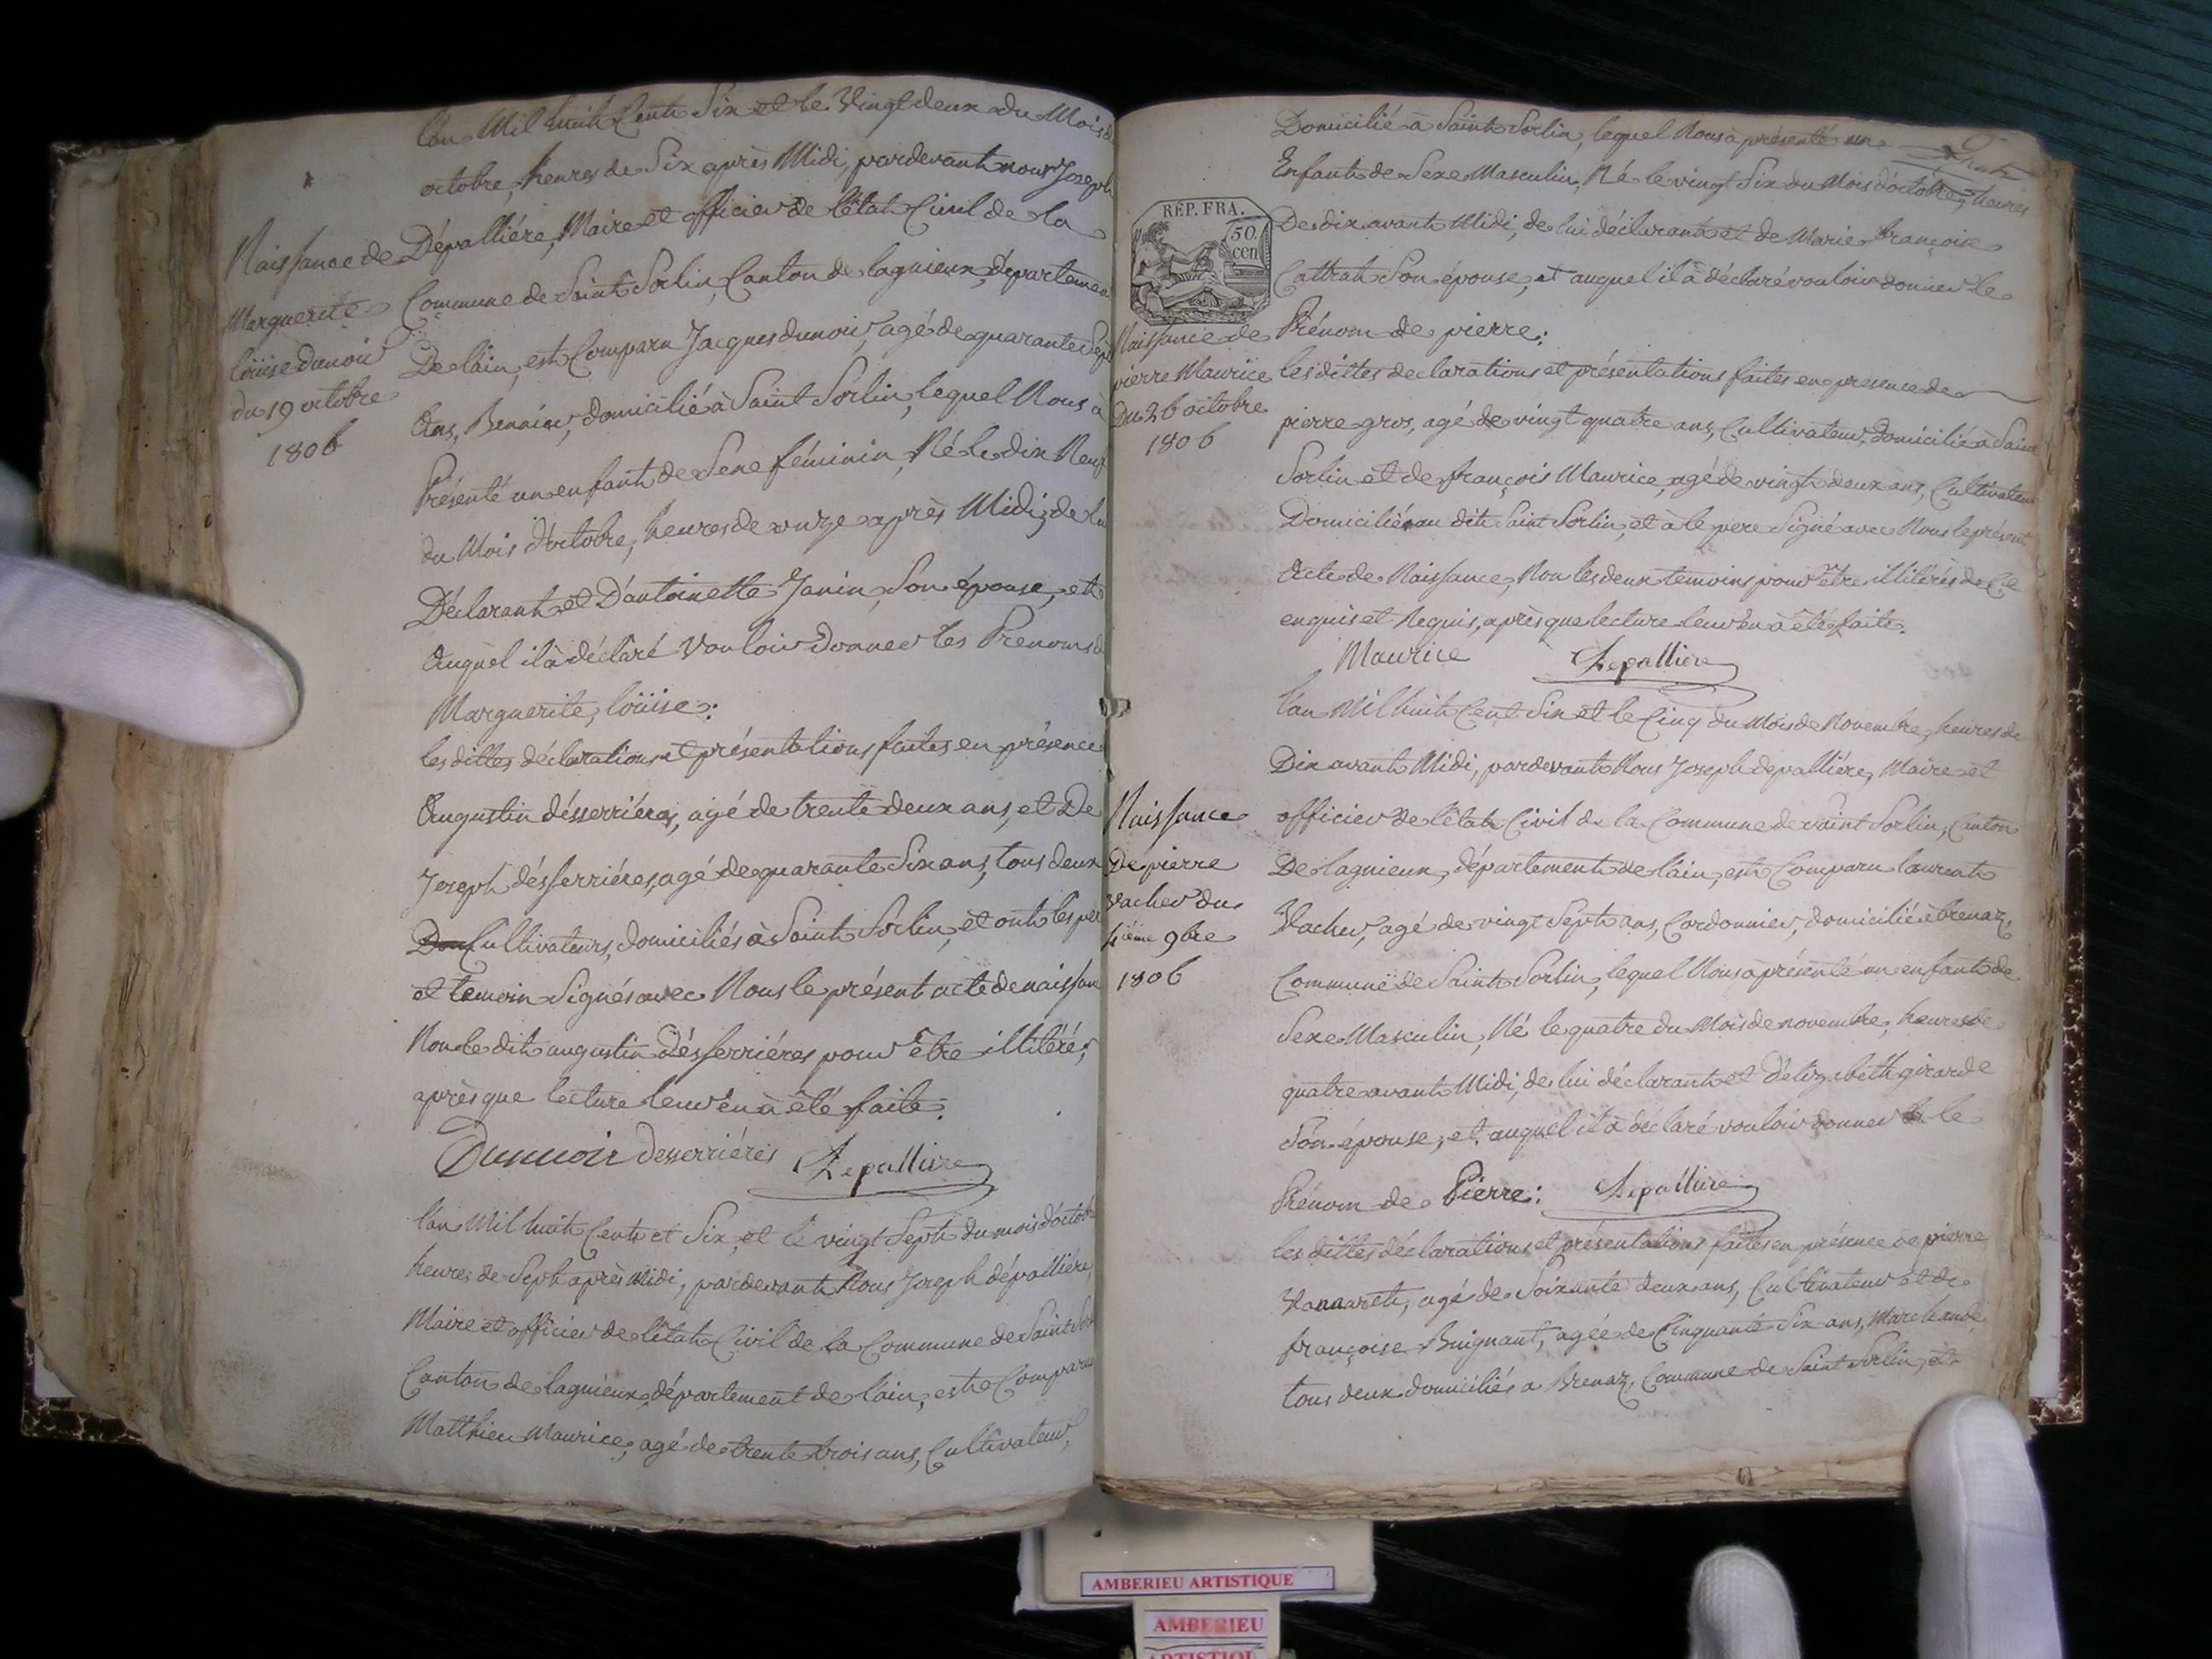 l'an Mil huit Cent Six et le Vingt deux du Mois d
octobre, heures de Six après Midi, pardevant nous Joseph
Dépalliére, Maire et officier de l'état Civil de la
Commune de Saint Sorlin, Canton de lagnieux, départemen
De l'ain, est Comparu Jacques dunoir, agé de quarante Sept
Ans, domicilié à Saint Sorlin, lequel Nous à
Présenté un enfant de Sexe féminin, Né le dix Neuf
du Mois d'octobre, heures de onze après Midi, de lu
Déclarant et D'antoinette Janin, Son épouse, et
Auquel il à déclaré Vouloir Donner les Prenoms d
Marguerite, loüise:
les dittes déclarations et présentations faites en présence
Augustin désserriéres, agé de trente deux ans, et De
Joseph désserriéres, agé de quarante Six ans, tous deux
Cultivateurs, domiciliés à Saint Sorlin, et ont les per
et temoin Signés avec Nous le présent acte de naissan
Non le dit augustin Désserriéres pour être illitéré,
après que lecture leur en à été faite.
Dunuoir desserriéres Depalliere
l'an Mil huit Cent et Six, et le vingt Sept du mois d'octob
heures de Sept après Midi, pardevant Nous Joseph dépalliére,
Maire et officier de l'état Civil de la Commune de Saint So
Canton de lagnieux, département de l'ain, est Comparu
Matthieu Maurice, agé de trente trois ans, Cultivateur,
Naissance de
Marguerite
loüise dunoir
du 19 octobre
1806
Domicilié à Saint Sorlin, lequel Nous à présenté un
Enfant de Sexe Masculin, Né le vingt Six du Mois d'octobre, heures
De dix avant Midi, de lui déclarant et de Marie françoise
Cattrat Son épouse, et auquel il à déclaré vouloir donner le
Prénom de pierre:
les dittes declarations et présentations faites en presence de
pierre gros, agé de vingt quatre ans, Cultivateur, domicilié à Saint
Sorlin et de françois Maurice, agé de vingt deux ans, Cultivateur
Domicilié au dit Saint Sorlin, et à le pere Signé avec Nous le présent
Acte de Naissance, Non les deux temoins pour être illitérés de Ce
enquis et Requis, après que lecture leur en à été faite.
Maurice Depalliere
l'an Mil huit Cent Six et le Cinq du Mois de Novembre, heures de
Dix avant Midi, pardevant Nous Joseph depalliére, Maire et
officier de l'état Civil de la Commune de Saint Sorlin, Canton
De lagnieux, département de l'ain, est Comparu laurent
Vacher, agé de vingt Sept ans, Cordonnier, domicilié à brenaz,
Commune de Saint Sorlin, lequel Nous à présenté un enfant de
Sexe Masculin, Né le quatre du Mois de novembre, heures de
quatre avant Midi, de lui déclarant et D'élizabeth girarde
Son épouse, et auquel il à déclaré vouloir donner le
Prénom de Pierre: Depalliere
les dittes déclarations et présentations faites en présence de pierre
agé de Soixante deux ans, Cultivateur et de
françoise Buignant, agée de Cinquante Six ans, Marchande
tous deux domiciliés a Brenaz, Commune de Saint Sorlin, et
RÉP. FRA.
50
cen
Naissance de
pierre Maurice
Du 26 octobre
1806
Naissance
De pierre
Vacher du
4ieme 9bre
1806
AMBERIEU ARTISTIQUE
AMBERIEU
ARTISTIQU